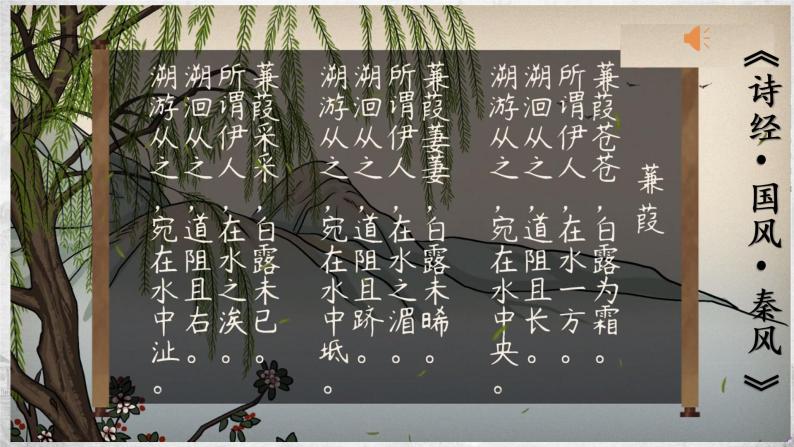 《诗经·国风·秦风》
蒹葭
蒹葭苍苍,白露为霜。
所谓伊人,在水一方。
溯洄从之,道阻且长。
溯游从之,宛在水中央。
蒹葭萋萋,白露未晞。
所谓伊人,在水之湄。
溯洄从之,道阻且跻。
溯游从之,宛在水中坻。
蒹葭采采,白露未已。
所谓伊人,在水之涘。
溯洄从之,道阻且右。
溯游从之,宛在水中沚。